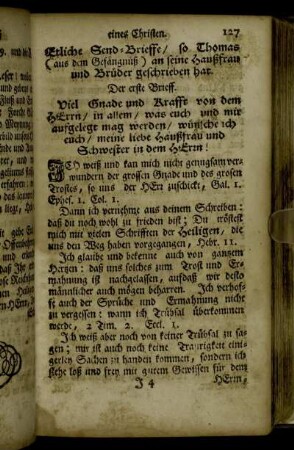 eines Christen. 127
Etliche Send-Brieffe / so Thomas
(aus dem Gefängnüß) an seine Haußfrau
und Brüder geschrieben hat.
Der erste Brieff.
Viel Gnade und Krafft von dem
HErrn / in allem / was euch und mir
aufgelegt mag werden / wünsche ich
euch / meine liebe Haußfrau und
Schwester in dem HErrn!
ICh weiß und kan mich nicht genugsam ver-
wundern der grossen Gnade und des grosen
Trostes, so uns der HErr zuschickt, Gal. 1.
Ephes. 1. Col. 1.
Dann ich vernehme aus deinem Schreiben:
daß du noch wohl zu frieden bist; Du tröstest
mich mit vielen Schrifften der Heiligen, die
uns den Weg haben vorgegangen, Hebr. 11.
Ich glaube und bekenne auch von gantzem
Hertzen: daß uns solches zum Trost und Er-
mahnung ist nachgelassen, aufdaß wir desto
männlicher auch mögen beharren. Ich verhof-
fe auch der Sprüche und Ermahnung nicht
zu vergessen: wann ich Trübsal überkommen
werde, 2 Tim. 2. Eccl. 1.
Ich weiß aber noch von keiner Trübsal zu sa-
gen; mir ist auch noch keine Traurigkeit eini-
gerley Sachen zu handen kommen, sondern ich
stehe loß und frey mit gutem Gewissen für dem
J 4 HErrn,